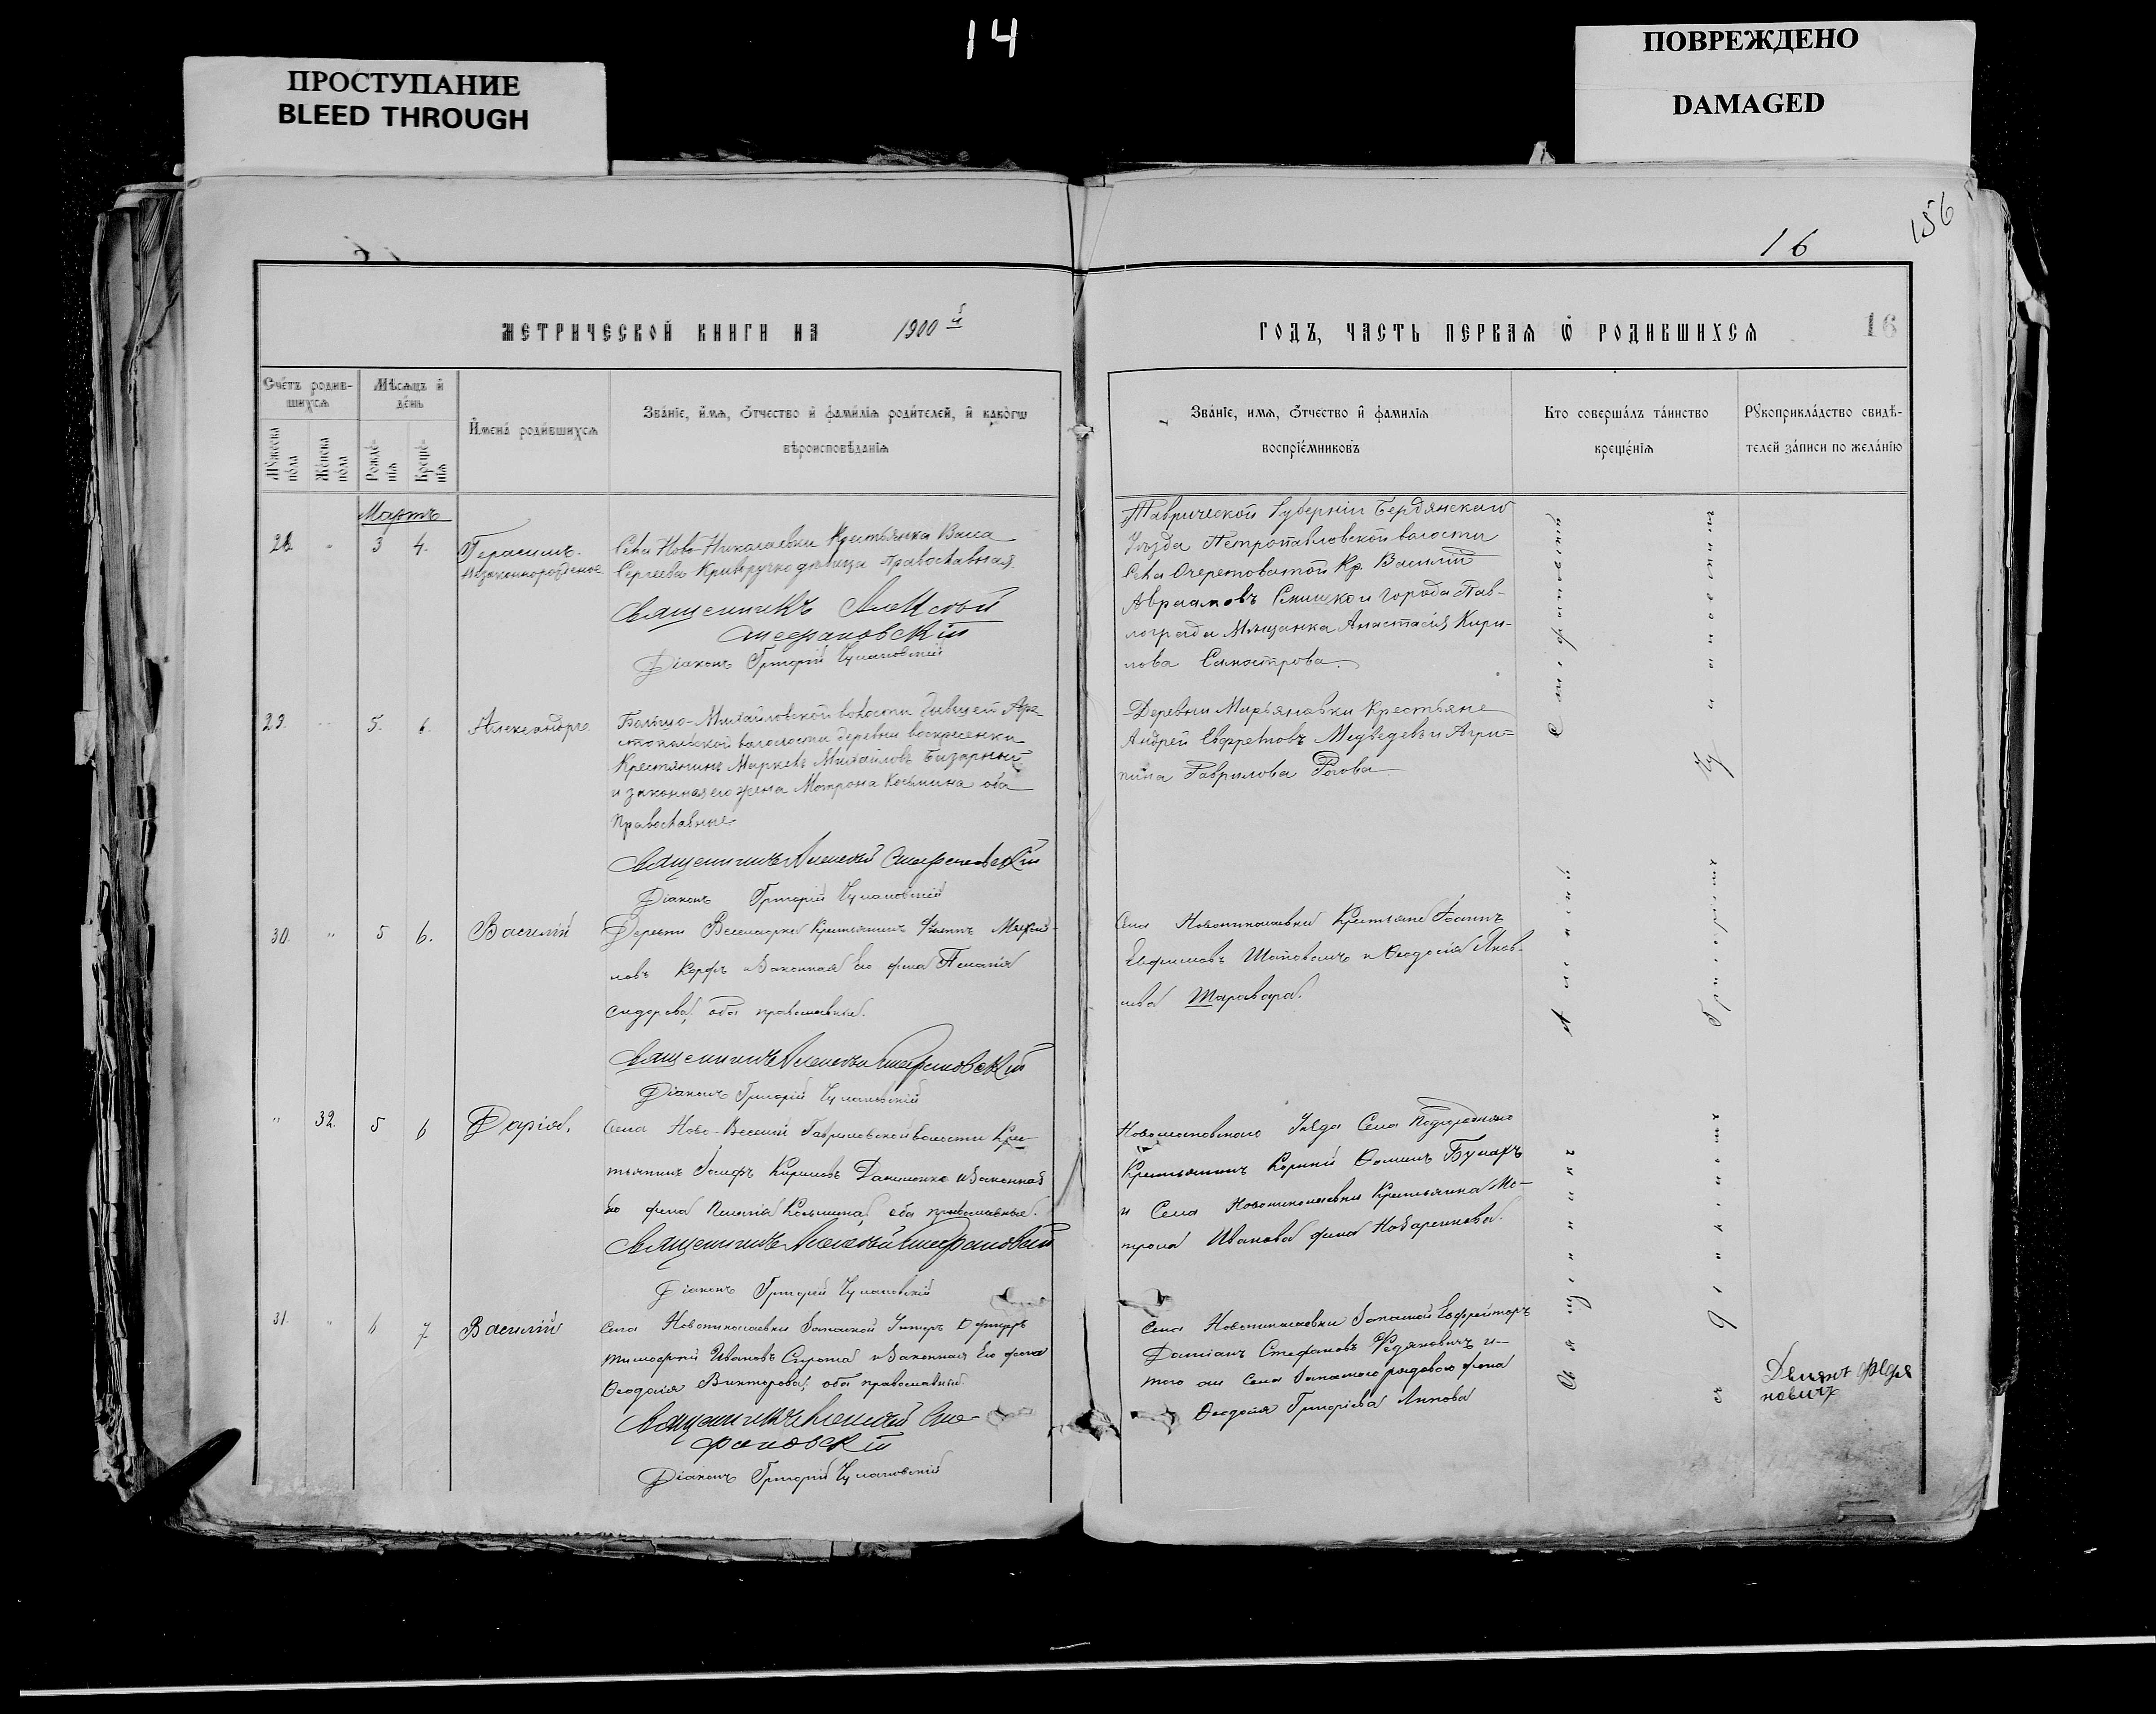 14
ПРОСТУПАНИЕ
BLEED THROUGH
ПОВРЕЖДЕНО
DAMAGED
156
16
МЕТРИЧЕСКОЙ КНИГИ НА 1900й
ГОДЪ, ЧАСТЬ ПЕРВАЯ Ѿ РОДИВШИХСЯ
16
Счетъ родив-
шихся
Мѣсяцъ и
день
Мужеска пола
Женска пола
Рожде-
нія
Креще-
нія
Имена родившихся
Званіе, имя, отчество и фамилія родителей, и какогѡ
вѣроисповѣданія
Званіе, имя, отчество и фамилія
воспріемниковъ
Кто совершалъ таинство
крещенія
Рукоприкладство свидѣ-
телей записи по желанію
Мартъ
28 " 3 4.
Герасимъ.
незаконнорожденное
Села Ново-Николаевки Крестьянка Васса
Сергеева Криворучко девица православная.
Священникъ Алексѣй
Стефановскій
Діаконъ Григорій Чулановскій
Таврической Губерніи Бердянскаго
Уѣзда Петропавловской волости
Села Очеретоватой Кр. Василій
Авраамовъ и города Пав-
лограда Мѣщанка Анастасія Кири-
лова
29. " 5. 6.
Александръ.
Больше-Михайловской волости бывшей
волости деревни Воскресенки
Крестянинъ Маркелъ Михайловъ Базарный
и законная его жена Мотрона Козьмина оба
Православные
Священникъ Алексѣй Стефановскій
Діаконъ Григорій Чулановскій
Деревни Марьяновки Крестьяне
Андрей Медведевъ и Агри-
пина Гаврилова Рогова
30. " 5 6.
Василій
Деревни Крестьянинъ Филипъ
ловъ Корфъ и Законная Его жена Пелагія
Сидорова, оба православные.
Священникъ Алексѣй Стефановскій
Діаконъ Григорій Чулановскій
Села Новониколаевки Крестьяне Іоаннъ
Евфимовъ Шаповалъ и Ѳеодосія Яков-
лева Шаравара.
" 32. 5 6
Дарія.
Села Ново- Гавриловской волости Крес-
тьянинъ Іосифъ Кириловъ Данленко и Законная
Его жена Пелагія Козьмина, оба православные.
Священникъ Алексѣй Стефановскій
Діаконъ Григорій Чулановскій
Новомосковскаго Уѣзда Села Подгороднаго
Крестьянинъ Корній Ѳоминъ
и Села Новониколаевки Крестьянка Мо-
трона Иванова жена
31. " 6 7
Василій
Села Новониколаевки Запасной Унтеръ Офицеръ
Тимофей Ивановъ Сирота и Законная Его жена
Ѳеодосія Викторова, оба православные.
Священникъ Алексѣй Сте-
фановскій
Діаконъ Григорій Чулановскій
Села Новониколаевки Запасной Ефрейторъ
Даміанъ Стефановъ Федяновичъ и
того же Села Запасного рядового жена
Ѳеодосія Григоріева
Священникъ Алексѣй Стефановскій
съ діакономъ Григоріемъ Чулановскимъ
Демянъ Федя
новичъ